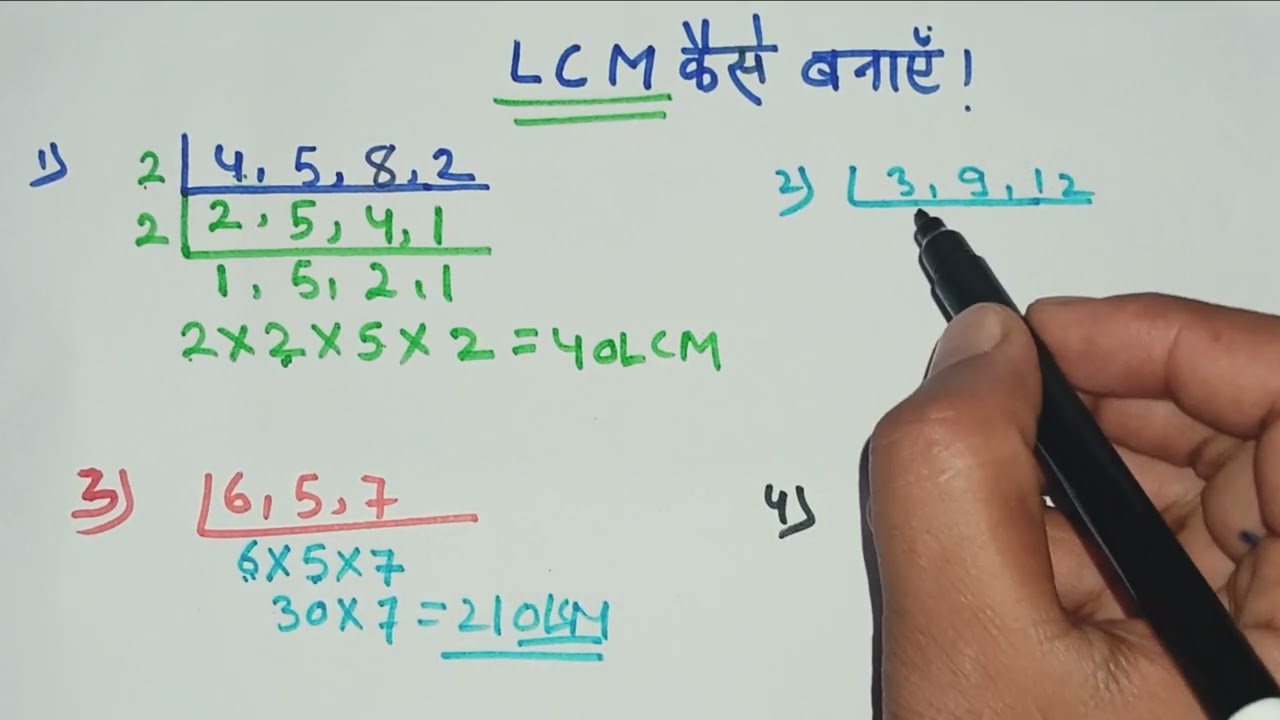 LCM कैसे बनाएँ!
1) 2 4, 5, 8, 2
2 2, 5, 4, 1
1, 5, 2, 1
2×2×5×2=40LCM
2) 3, 9, 12
3) 6, 5, 7
6×5×7
30×7=210LCM
4)